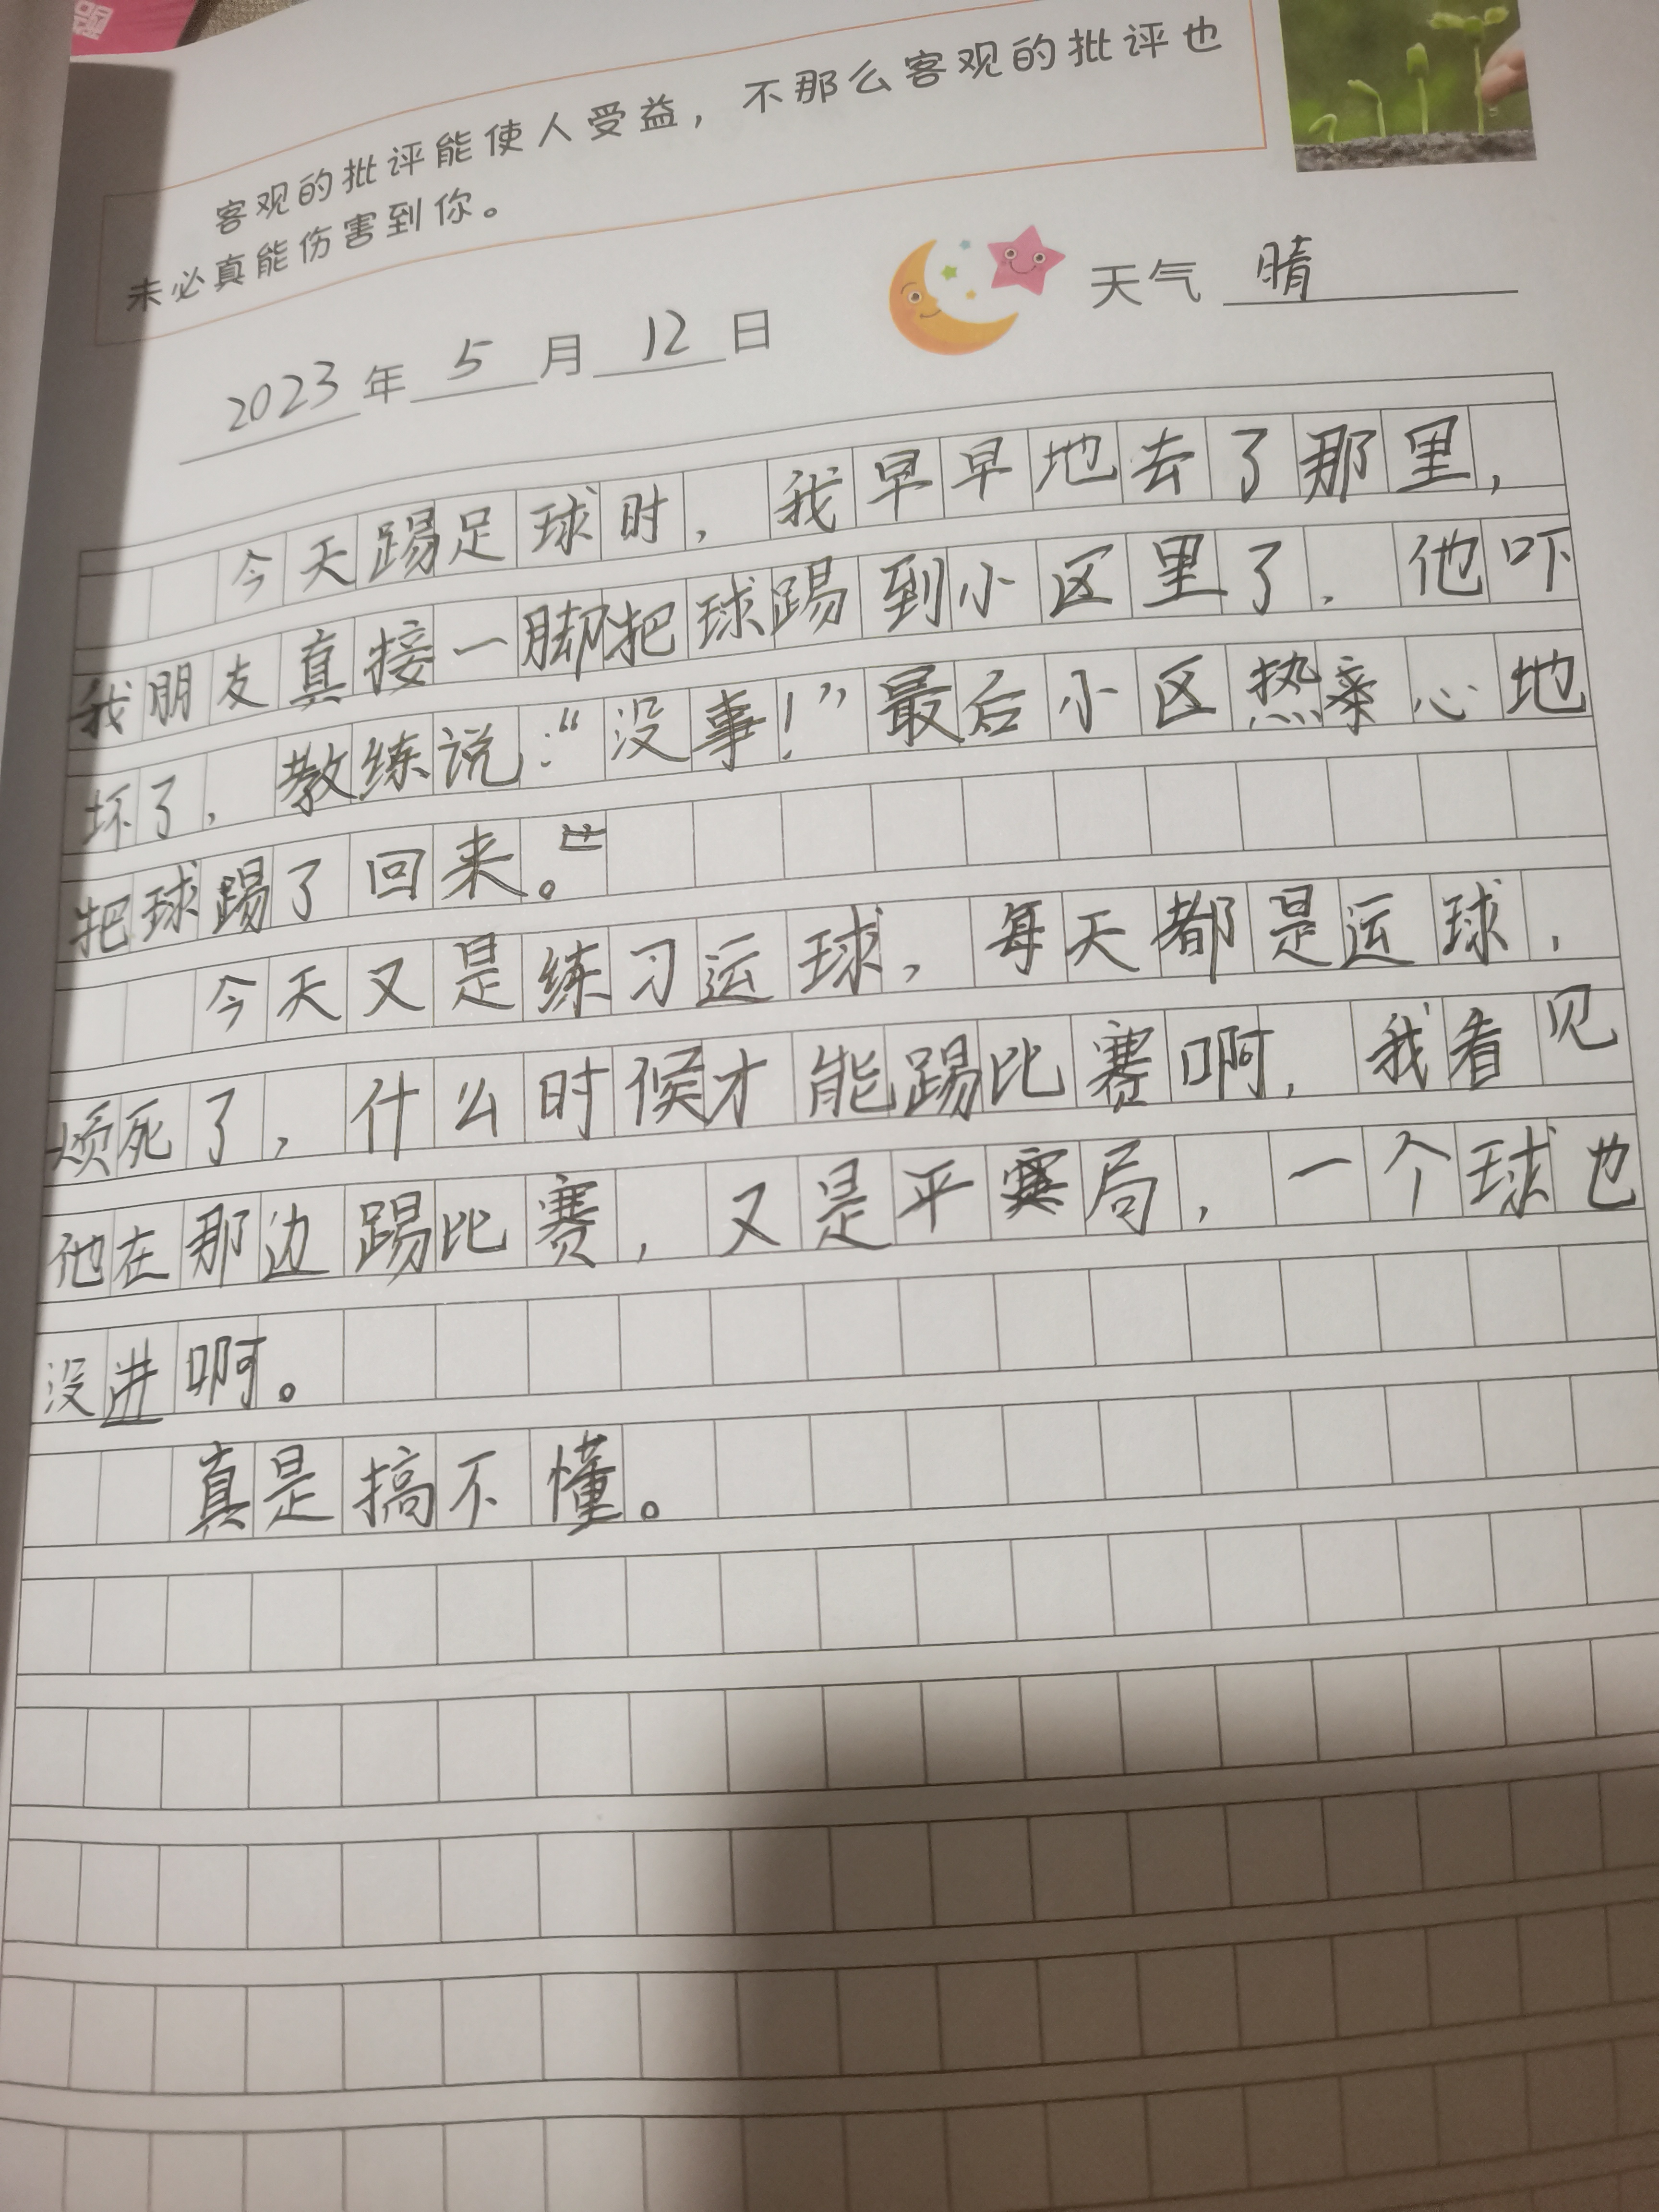 客观的批评能使人受益，不那么客观的批评也
未必真能伤害到你。
2023年5月12日
天气 晴
今天踢足球时，我早早地去了那里，
我朋友真接一脚把球踢到小区里了．他吓
坏了，教练说：“没事！”最后小区热亲心地
把球踢了回来。
今天又是练习运球，每天都是运球，
烦死了，什么时候才能踢比赛啊，我看见
他在那边踢比赛，又是平赛局，一个球也
没进啊。
真是搞不懂。